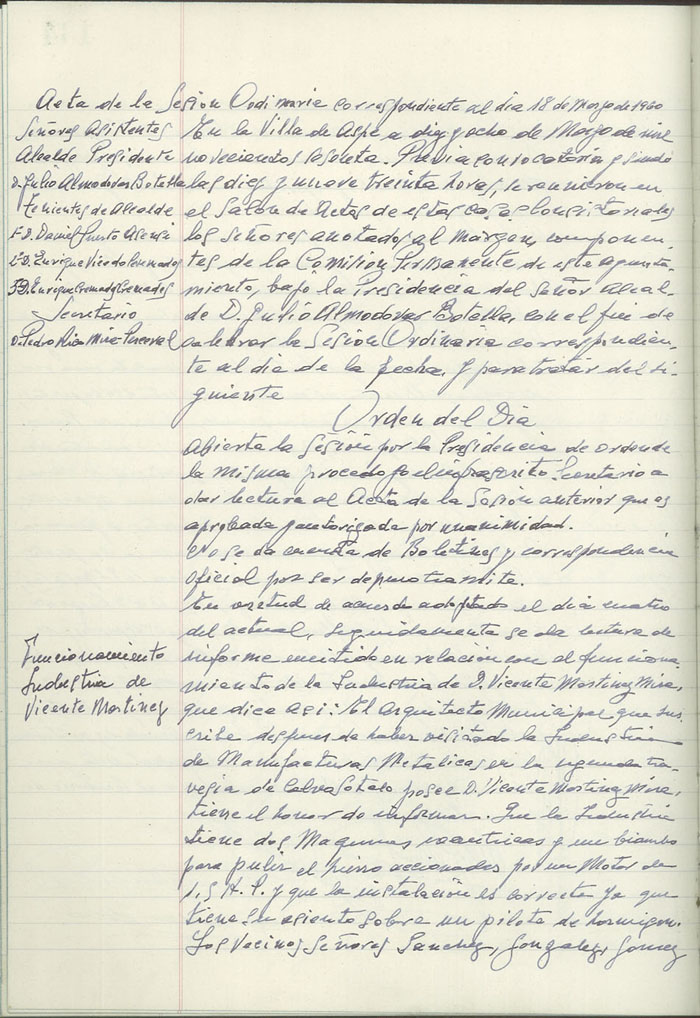 Acta de la Sesion Ordinaria correspondiente al dia 18 de Marzo de 1960
Señores Asistentes
Alcalde Presidente
D. Julio Almodovar Botella
Tenientes de Alcalde
1º D. Daniel Justo Asensi
2º D. Enrique Vicedo
3º D. Enrique Cremades Cremades
Secretario
D. Pedro Mira Perceval
En la Villa de Aspe a diez y ocho de Marzo de mil
novecientos sesenta. Previa convocatoria y siendo
las diez y nueve treinta horas, se reunieron en
el Salon de Actos de estas casas Consistoriales
los señores anotados al margen, componen-
tes de la Comision Permanente de este Ayunta-
miento, bajo la Presidencia del Señor Alcal-
de D. Julio Almodovar Botella, con el fin de
celebrar la Sesion Ordinaria correspondien-
te al dia de la fecha, y para tratar del si-
guiente
Orden del Dia
Abierta la Sesión por la Presidencia de orden de
la misma procedo yo el infrascrito Secretario a
dar lectura al Acta de la Sesión anterior que es
aprobada y autorizada por unanimidad.
No se da cuenta de Boletines y correspondencia
oficial por ser de puro tramite.
Funcionamiento
Industria de
Vicente Martinez
En virtud de acuerdo adoptado el dia cuatro
del actual, seguidamente se da lectura de
informe emitido en relación con el funciona-
miento de la Industria de D. Vicente Martinez Mira,
que dice asi: El Arquitecto Municipal que sus-
cribe despues de haber visitado la Industria
de Manufacturas Metalicas en la segunda tra-
vesia de Calvo Sotelo posee D. Vicente Martinez Mira,
tiene el honor de informar. Que la Industria
tiene dos Maquinas y un
para pulir el hierro accionados por un Motor de
1,5 H.P. y que la instalación es correcta ya que
tiene su asiento sobre un pilote de hormigon.
Los Vecinos Señores Sanchez, Gonzalez, Gomez